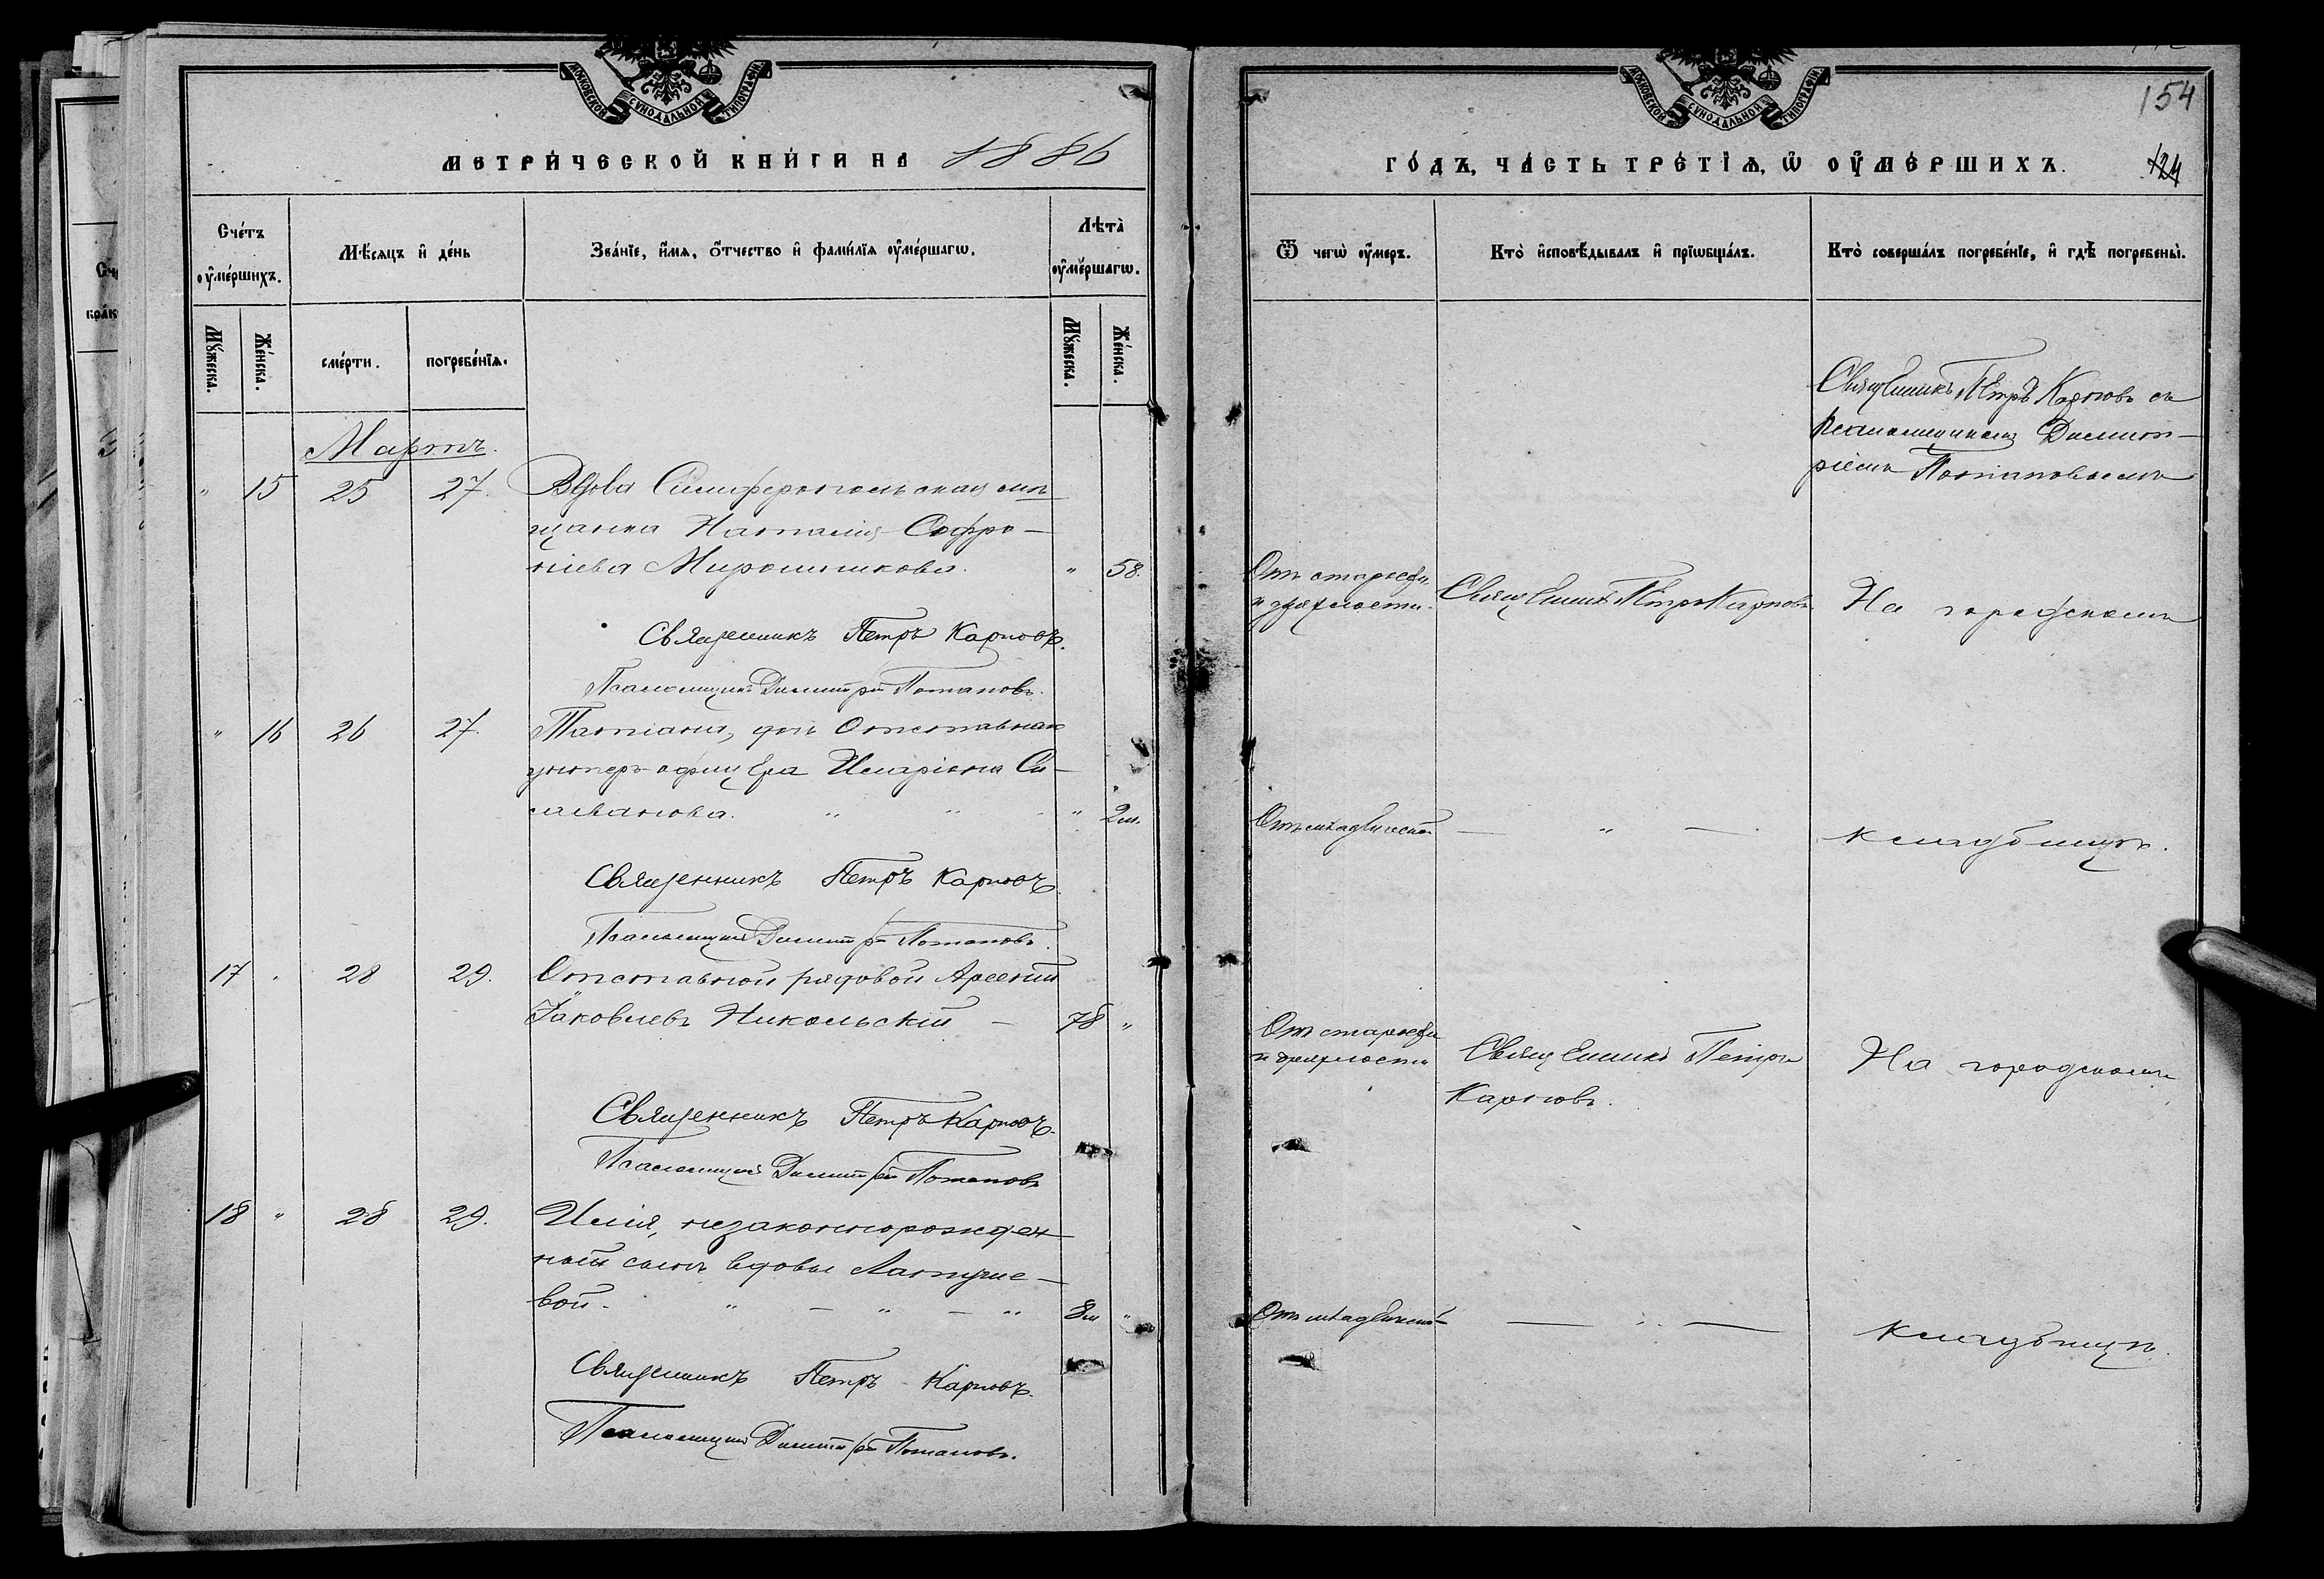 МОСКОВСКОЙ СУНОДАЛЬНОЙ ТИПОГРАФІИ
МЕТРИ́ЧЕСКОЙ КНИ́ГИ НА 1886
Сче́тъ оу҆ме́ршихъ.
Мѣ́сяцъ и҆ де́нь
Зва́нїе, и҆́мѧ, ѻ҆́тчество и҆ фами́лїѧ оу҆ме́ршагѡ.
Лѣта̀ оу҆ме́ршагѡ.
Мꙋ́жеска.
Же́нска.
сме́рти.
погребе́нїѧ.
Мꙋ́жеска.
Же́нска.
Мартъ.
" 15 25 27. Вдова Симферопольская мѣ
щанка Наталія Софро-
ніева Мирошникова. " 58.
Священникъ Петръ Карповъ.
Псаломщикъ Димитрій Потаповъ.
" 16 26 27. Татіана, дочь Отставнаго
унтеръ-офицера Иларіона Си-
лыванова. " " " 2м.
Священникъ Петръ Карповъ.
Псаломщикъ Димитрій Потаповъ.
17 " 28 29. Отставной рядовой Арсеній
Іаковлевъ Никольскій - 78 "
Священникъ Петръ Карповъ.
Псаломщикъ Димитрій Потаповъ
18 " 28 29. Илія, незаконнорожден
ный сынъ вдовы
вой. " - " - " 8м "
Священникъ Петръ Карповъ.
Псаломщикъ Димитрій Потаповъ.
МОСКОВСКОЙ СУНОДАЛЬНОЙ ТИПОГРАФІИ
154
ГО́ДЪ, ЧА́СТЬ ТРЕ́ТЇѦ, Ѡ҆ ОУ҆МЕ́РШИХЪ.
124
Ѿ чегѡ̀ оу҆́меръ.
Кто̀ и҆сповѣ́дывалъ и҆ прїѡбща́лъ.
Кто̀ соверша́лъ погребе́нїе, и҆ гдѣ̀ погребены̀.
Священникъ Петръ Карповъ съ
псаломщикомъ Димит-
ріемъ Потаповымъ
Отъ старости
и дряхлости. Священникъ Петръ Карповъ На городскомъ
Отъ младенческой — " — кладбищѣ.
Отъ старости
и дряхлости Священникъ Петръ На городскомъ
Карповъ.
Отъ младенческой — " — кладбищѣ.